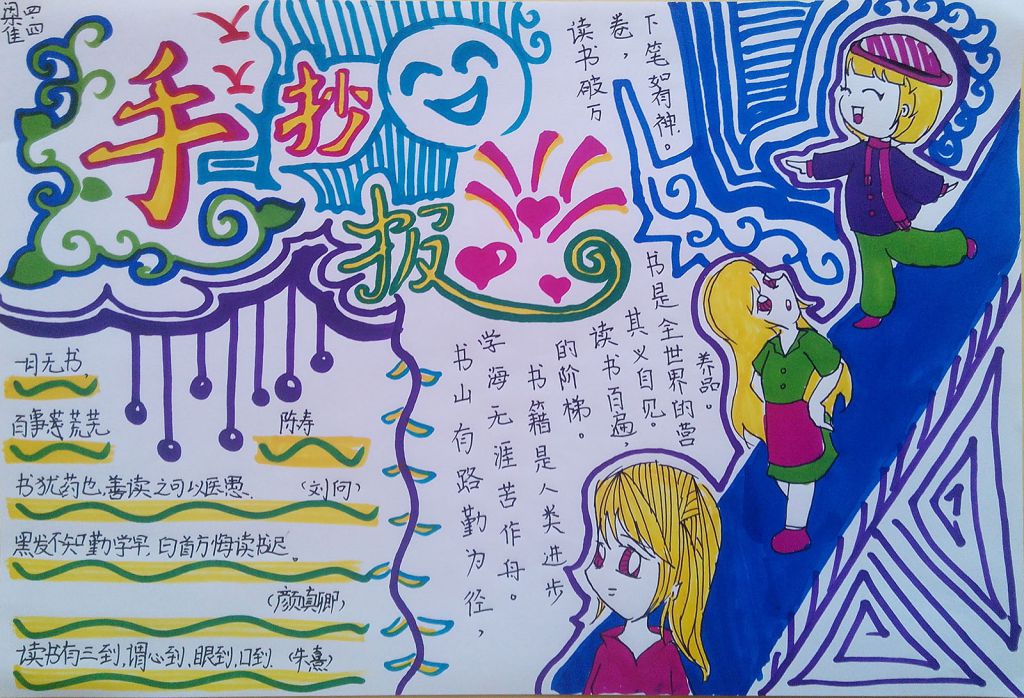 四.四
梁佳
手
抄
报
读书破万
卷，
下笔如有神。
书是
全世界的营
养品。
读书百遍，
其义自见。
书籍是人类进步
的阶梯。
书山有路勤为径，
学海无涯苦作舟。
一日无书，
百事荒芜
陈寿
书犹药也，善读之可以医愚. （刘向）
黑发不知勤学早. 白首方悔读书迟。
（颜真卿）
读书有三到，谓心到，眼到，口到. （朱熹）